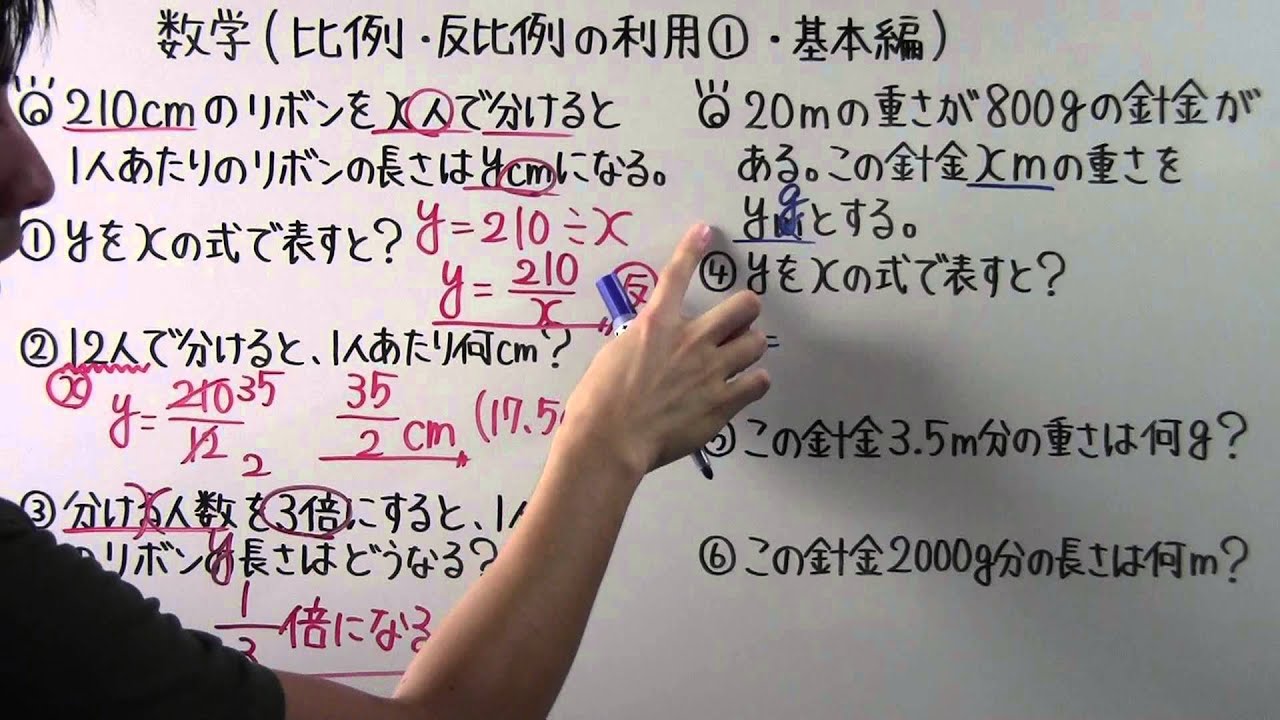 数学(比例・反比例の利用①・基本編)
210cmのリボンをx人で分けると
1人あたりのリボンの長さはycmになる。
①yをxの式で表すと?
y=210÷x
y=210/x
反
②12人で分けると、1人あたり何cm?
x
y=210/12
35
2
35/2cm
(17.5
③分ける人数を3倍にすると、1
x
リボンの長さはどうなる?
y
1/3倍になる
20mの重さが800gの針金が
ある。この針金xmの重さを
ygとする。
④yをxの式で表すと?
=
この針金3.5m分の重さは何g?
⑥この針金2000g分の長さは何m?